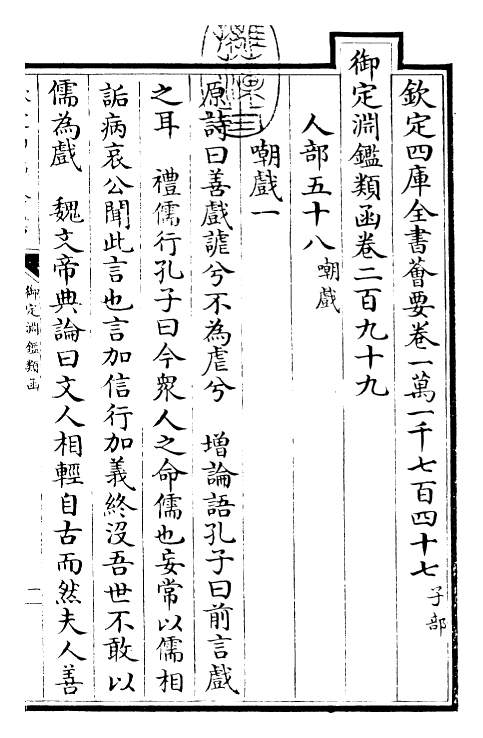 欽定四庫全書薈要卷一萬一千七百四十七 子部
御定淵鑑類函卷二百九十九
人部五十八 嘲戲
嘲戲一
原詩曰善戲謔兮不為虐兮 增論語孔子曰前言戲
之耳 禮儒行孔子曰今衆人之命儒也妄常以儒相
詬病哀公聞此言也言加信行加義終沒吾世不敢以
儒為戲 魏文帝典論曰文人相輕自古而然夫人善
御定淵鑑類函
二